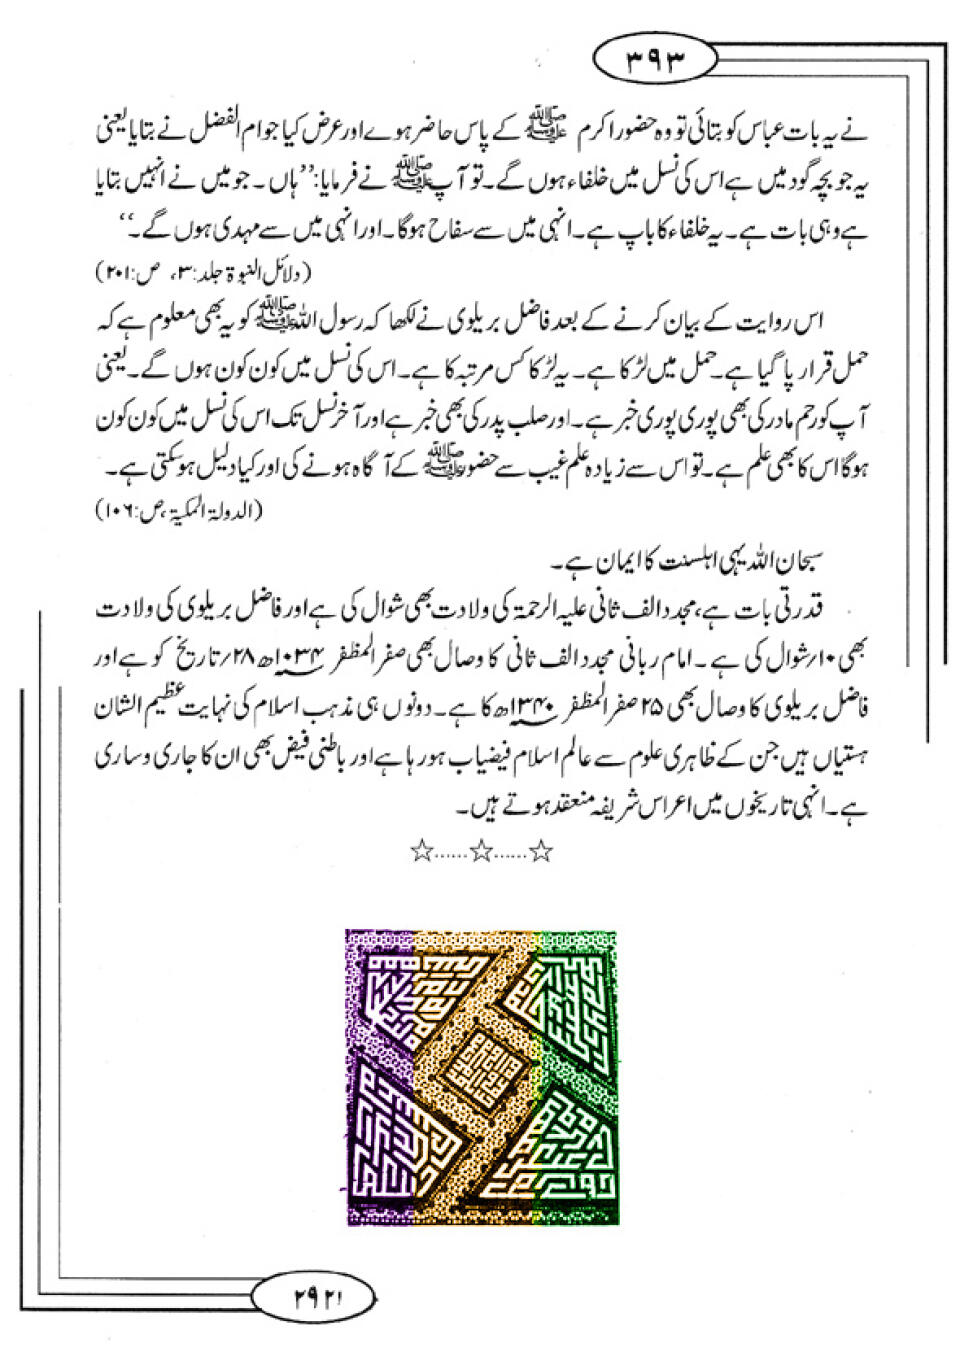 ۳۹۳
نے یہ بات عباس کو بتائی تو وہ حضور اکرم ﷺ کے پاس حاضر ہوے اور عرض کیا جو ام الفضل نے بتایا یعنی
یہ جو بچہ گود میں ہے اس کی نسل میں خلفاء ہوں گے۔ تو آپ ﷺ نے فرمایا: ’’ہاں۔ جو میں نے انہیں بتایا
ہے وہی بات ہے۔ یہ خلفاء کا باپ ہے۔ انہی میں سے سفاح ہوگا۔ اور انہی میں سے مہدی ہوں گے۔‘‘
(دلائل النبوۃ جلد:۳، ص:۲۰۱)
اس روایت کے بیان کرنے کے بعد فاضل بریلوی نے لکھا کہ رسول اللہ ﷺ کو یہ بھی معلوم ہے کہ
حمل قرار پا گیا ہے۔ حمل میں لڑکا ہے۔ یہ لڑکا کس مرتبہ کا ہے۔ اس کی نسل میں کون کون ہوں گے۔ یعنی
آپ کو رحم مادر کی بھی پوری پوری خبر ہے۔ اور صلب پدر کی بھی خبر ہے اور آخر نسل تک اس کی نسل میں کون کون
ہوگا اس کا بھی علم ہے۔ تو اس سے زیادہ علم غیب سے حضور ﷺ کے آگاہ ہونے کی اور کیا دلیل ہو سکتی ہے۔
(الدولۃ المکیۃ، ص:۱۰۶)
سبحان اللہ یہی اہلسنت کا ایمان ہے۔
قدرتی بات ہے، مجدد الف ثانی علیہ الرحمۃ کی ولادت بھی شوال کی ہے اور فاضل بریلوی کی ولادت
بھی ۱۰/شوال کی ہے۔ امام ربانی مجدد الف ثانی کا وصال بھی صفر المظفر ۱۰۳۴ھ ۲۸/تاریخ کو ہے اور
فاضل بریلوی کا وصال بھی ۲۵ صفر المظفر ۱۳۴۰ھ کا ہے۔ دونوں ہی مذہب اسلام کی نہایت عظیم الشان
ہستیاں ہیں جن کے ظاہری علوم سے عالم اسلام فیضیاب ہو رہا ہے اور باطنی فیض بھی ان کا جاری و ساری
ہے۔ انہی تاریخوں میں اعراس شریفہ منعقد ہوتے ہیں۔
☆......☆......☆
۲۹۲۱